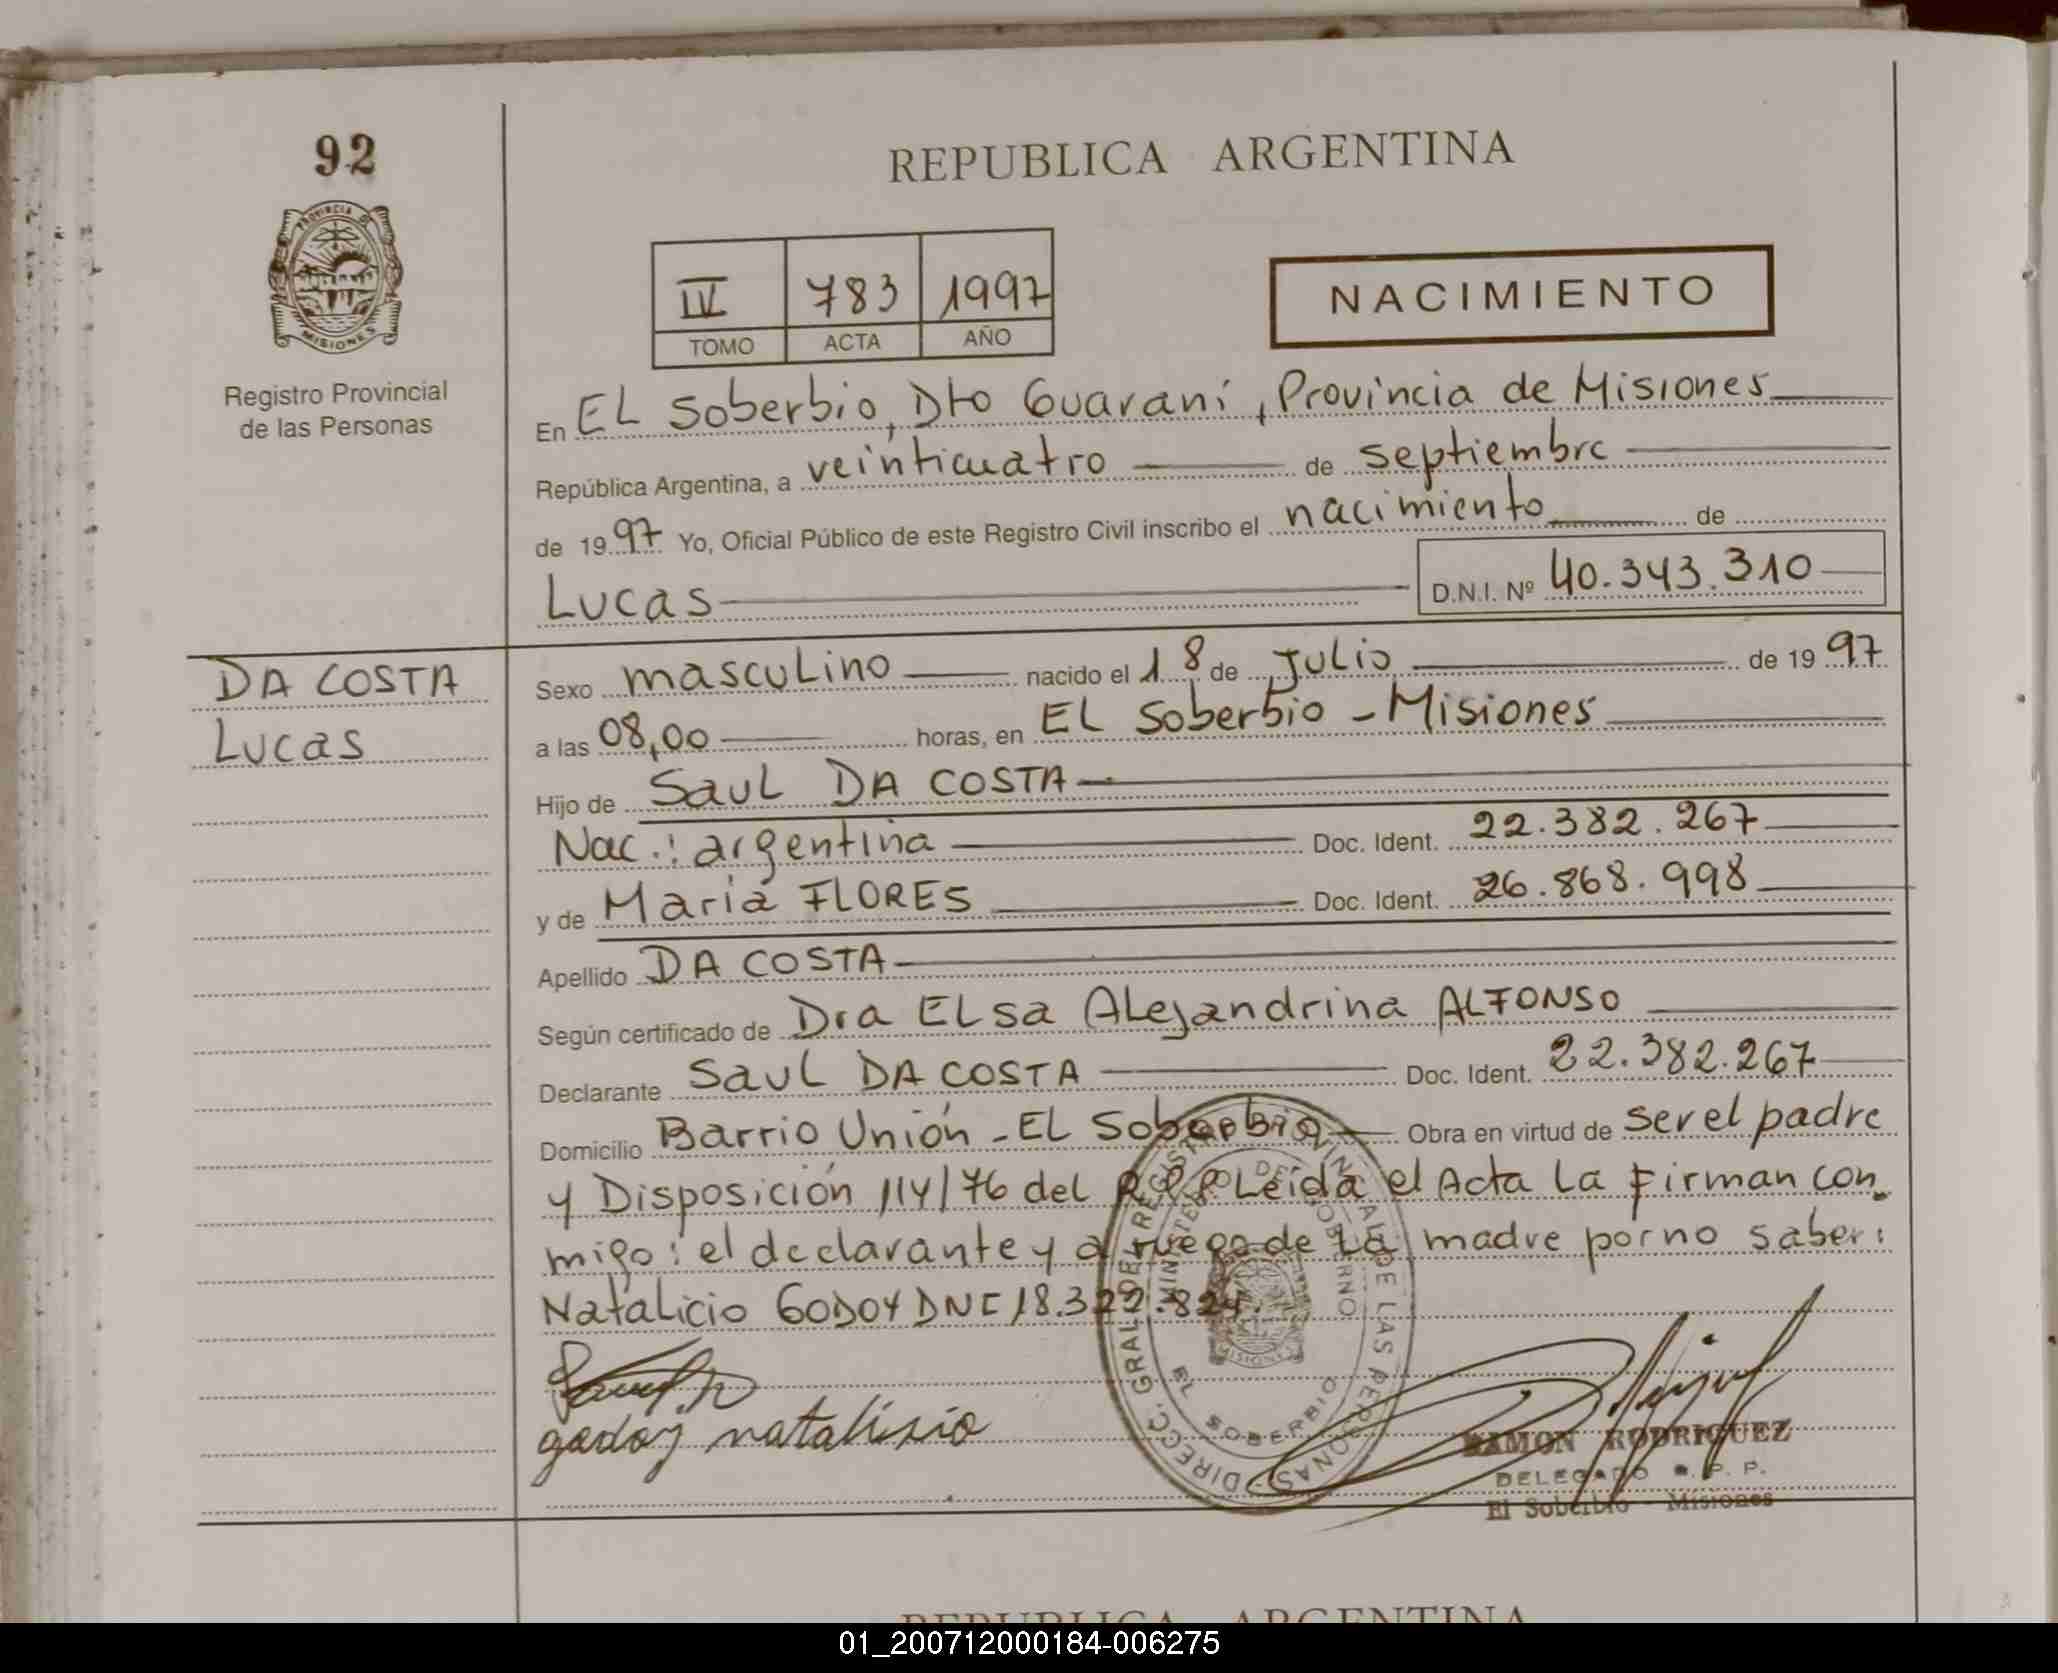 92
REPUBLICA ARGENTINA
PROVINCIA DE
MISIONES
Registro Provincial
de las Personas
IV 783 1997
TOMO ACTA AÑO
NACIMIENTO
En EL Soberbio, Dto Guaraní, Provincia de Misiones
República Argentina, a veinticuatro de septiembre
de 1997 Yo, Oficial Público de este Registro Civil inscribo el nacimiento de
Lucas D.N.I. Nº 40.343.310
DA COSTA
Lucas
Sexo masculino nacido el 18 de Julio de 1997
a las 08,00 horas, en EL Soberbio - Misiones
Hijo de Saul DA COSTA
Nac.: argentina Doc. Ident. 22.382.267
y de María FLORES Doc. Ident. 26.868.998
Apellido DA COSTA
Según certificado de Dra ELsa Alejandrina ALFONSO
Declarante Saul DA COSTA Doc. Ident. 22.382.267
Domicilio Barrio Unión - EL Soberbio Obra en virtud de ser el padre
y Disposición 114/76 del RPP Leída el Acta La Firman con
migo: el declarante y a ruego de La madre por no saber:
Natalicio GODOY DNI 18.322.824.
godoy natalisio
DIRECC. GRAL DEL REGISTRO PROVINCIAL DE LAS PERSONAS
MINISTERIO DE GOBIERNO
MISIONES
EL SOBERBIO
RAMON RODRIGUEZ
DELEGADO R. P. P.
El Soberbio - Misiones
REPUBLICA ARGENTINA
01_200712000184-006275